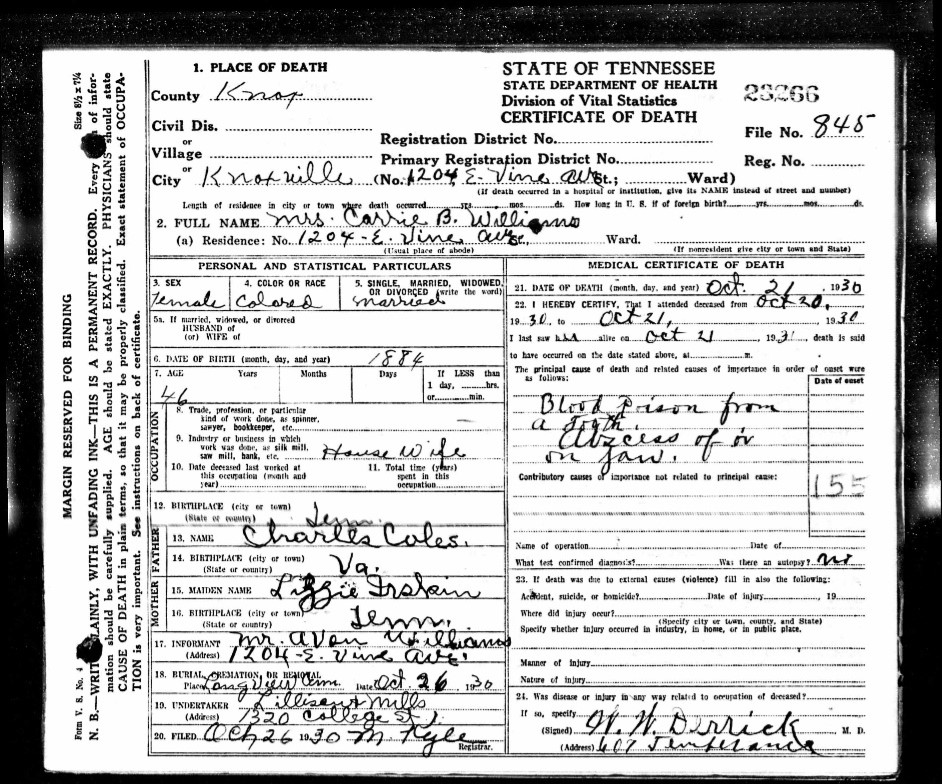 MARGIN RESERVED FOR BINDING
Size 8½ x 7¼
N. B.—WRITE PLAINLY, WITH UNFADING INK—THIS IS A PERMANENT RECORD. Every of infor-
mation should be carefully supplied. AGE should be stated EXACTLY. PHYSICIANS should state
CAUSE OF DEATH in plain terms, so that it may be properly classified. Exact statement of OCCUPA-
TION is very important. See instructions on back of certificate.
Form V. S. No. 4
STATE OF TENNESSEE
STATE DEPARTMENT OF HEALTH
Division of Vital Statistics
CERTIFICATE OF DEATH
23266
File No. 845
Reg. No.
1. PLACE OF DEATH
County Knox
Civil Dis.
or
Village
or
City Knoxville (No. 1204 E. Vine Ave St.; Ward)
Registration District No.
Primary Registration District No.
(If death occurred in a hospital or institution, give its NAME instead of street and number)
Length of residence in city or town where death occurred yrs. mos. ds. How long in U. S. if of foreign birth? yrs. mos. ds.
2. FULL NAME Mrs. Carrie B. Williams
(a) Residence: No. 1204-E. Vine Ave St., Ward.
(Usual place of abode) (If nonresident give city or town and State)
PERSONAL AND STATISTICAL PARTICULARS
3. SEX Female
4. COLOR OR RACE Colored
5. SINGLE, MARRIED, WIDOWED, OR DIVORCED (write the word) Married
5a. If married, widowed, or divorced
HUSBAND of
(or) WIFE of
6. DATE OF BIRTH (month, day, and year) 1884
7. AGE Years Months Days If LESS than
1 day, hrs.
or min.
46
OCCUPATION
8. Trade, profession, or particular
kind of work done, as spinner,
sawyer, bookkeeper, etc.
9. Industry or business in which
work was done, as silk mill,
saw mill, bank, etc. House Wife
10. Date deceased last worked at
this occupation (month and
year)
11. Total time (years)
spent in this
occupation
12. BIRTHPLACE (city or town)
(State or country) Tenn
FATHER
13. NAME Charles Coles.
14. BIRTHPLACE (city or town)
(State or country) Va.
MOTHER
15. MAIDEN NAME Lizzie Erskin
16. BIRTHPLACE (city or town)
(State or country) Tenn.
17. INFORMANT Mr. Avon Williams
(Address) 1204-E. Vine Ave.
18. BURIAL, CREMATION, OR REMOVAL
Place Long View Cem. Date Oct 26 1930
19. UNDERTAKER & Mills
(Address) 1320 College St
20. FILED Oct 26 1930 M Kyle
Registrar.
MEDICAL CERTIFICATE OF DEATH
21. DATE OF DEATH (month, day, and year) Oct. 21, 1930
22. I HEREBY CERTIFY, That I attended deceased from Oct 20,
1930, to Oct 21, 1930
I last saw h alive on Oct 21 193, death is said
to have occurred on the date stated above, at m.
The principal cause of death and related causes of importance in order of onset were
as follows:
Date of onset
Blood Poison from
a Tooth.
Abzcess of or
on Jaw.
Contributory causes of importance not related to principal cause:
155
Name of operation Date of
What test confirmed diagnosis? Was there an autopsy? No
23. If death was due to external causes (violence) fill in also the following:
Accident, suicide, or homicide? Date of injury 19
Where did injury occur?
(Specify city or town, county, and State)
Specify whether injury occurred in industry, in home, or in public place.
Manner of injury
Nature of injury
24. Was disease or injury in any way related to occupation of deceased?
If so, specify
(Signed) W. W. Derrick M. D.
(Address) 607 Temperance